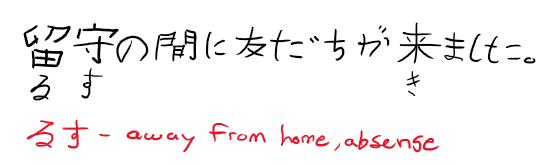 留守の間に友だちが来ました。
るす き
るす - away from home, absense